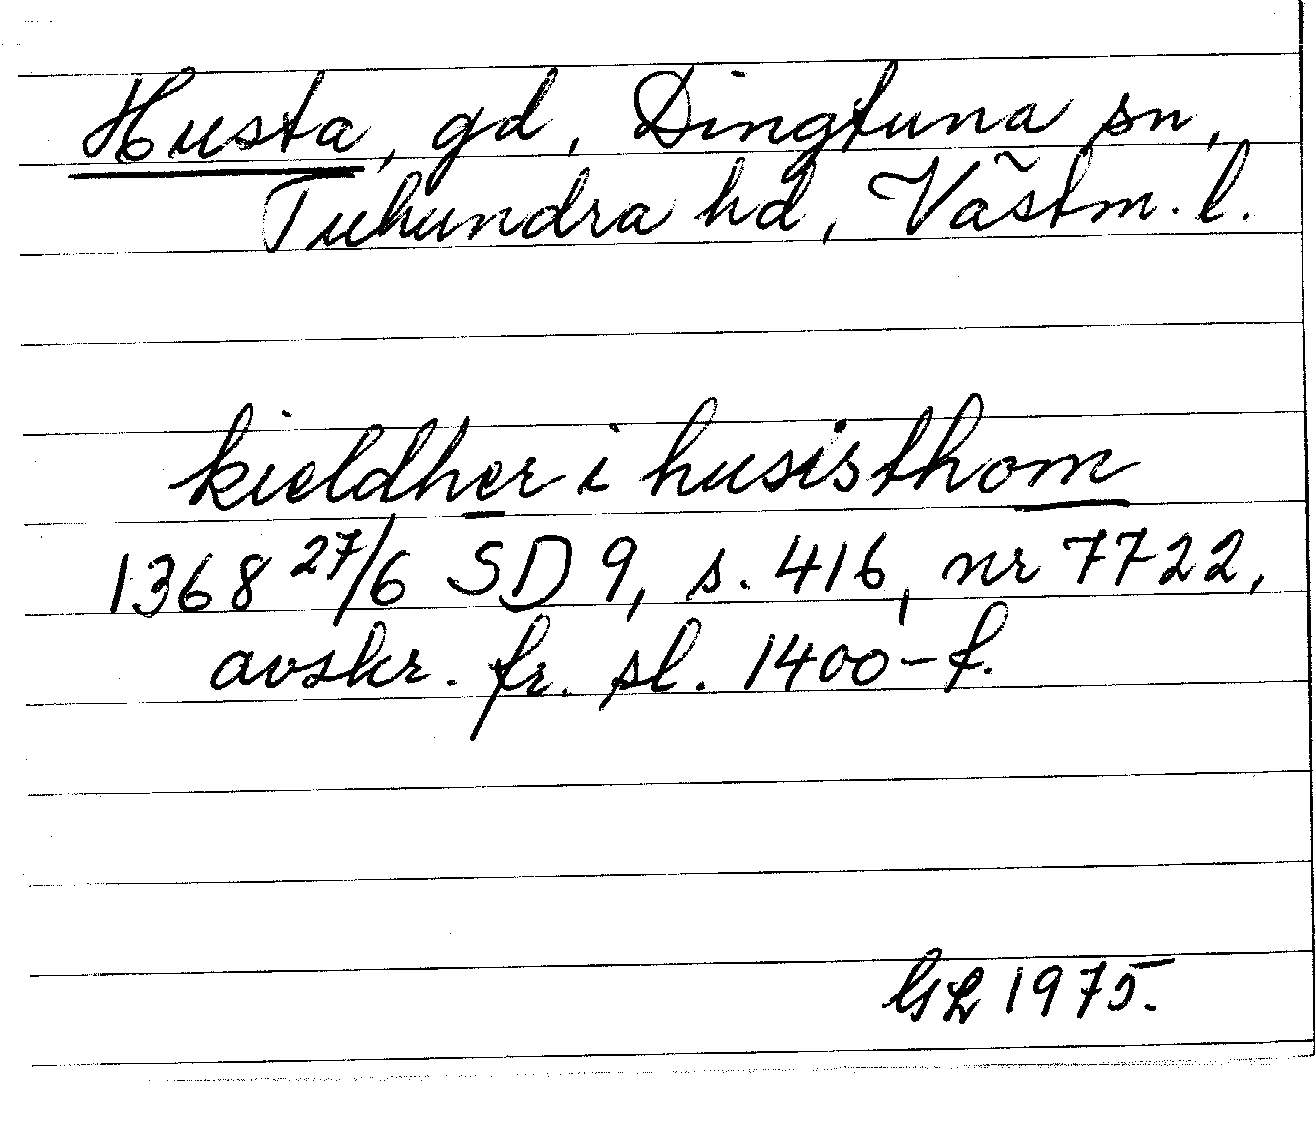 Husta, gd, Dingtuna sn,
Tuhundra hd, Västm. l.
kieldher i husisthom
1368 27/6 SD 9, s. 416, nr 7722,
avskr. fr. sl. 1400-t.
GL 1975.